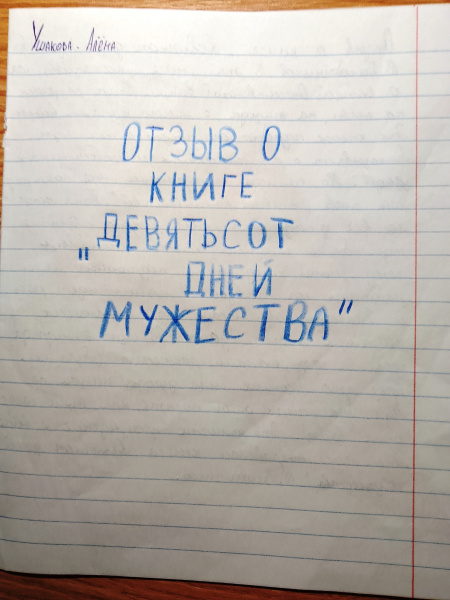 Ушакова. Алёна
ОТЗЫВ О
КНИГЕ
„ДЕВЯТЬСОТ
ДНЕЙ
МУЖЕСТВА"